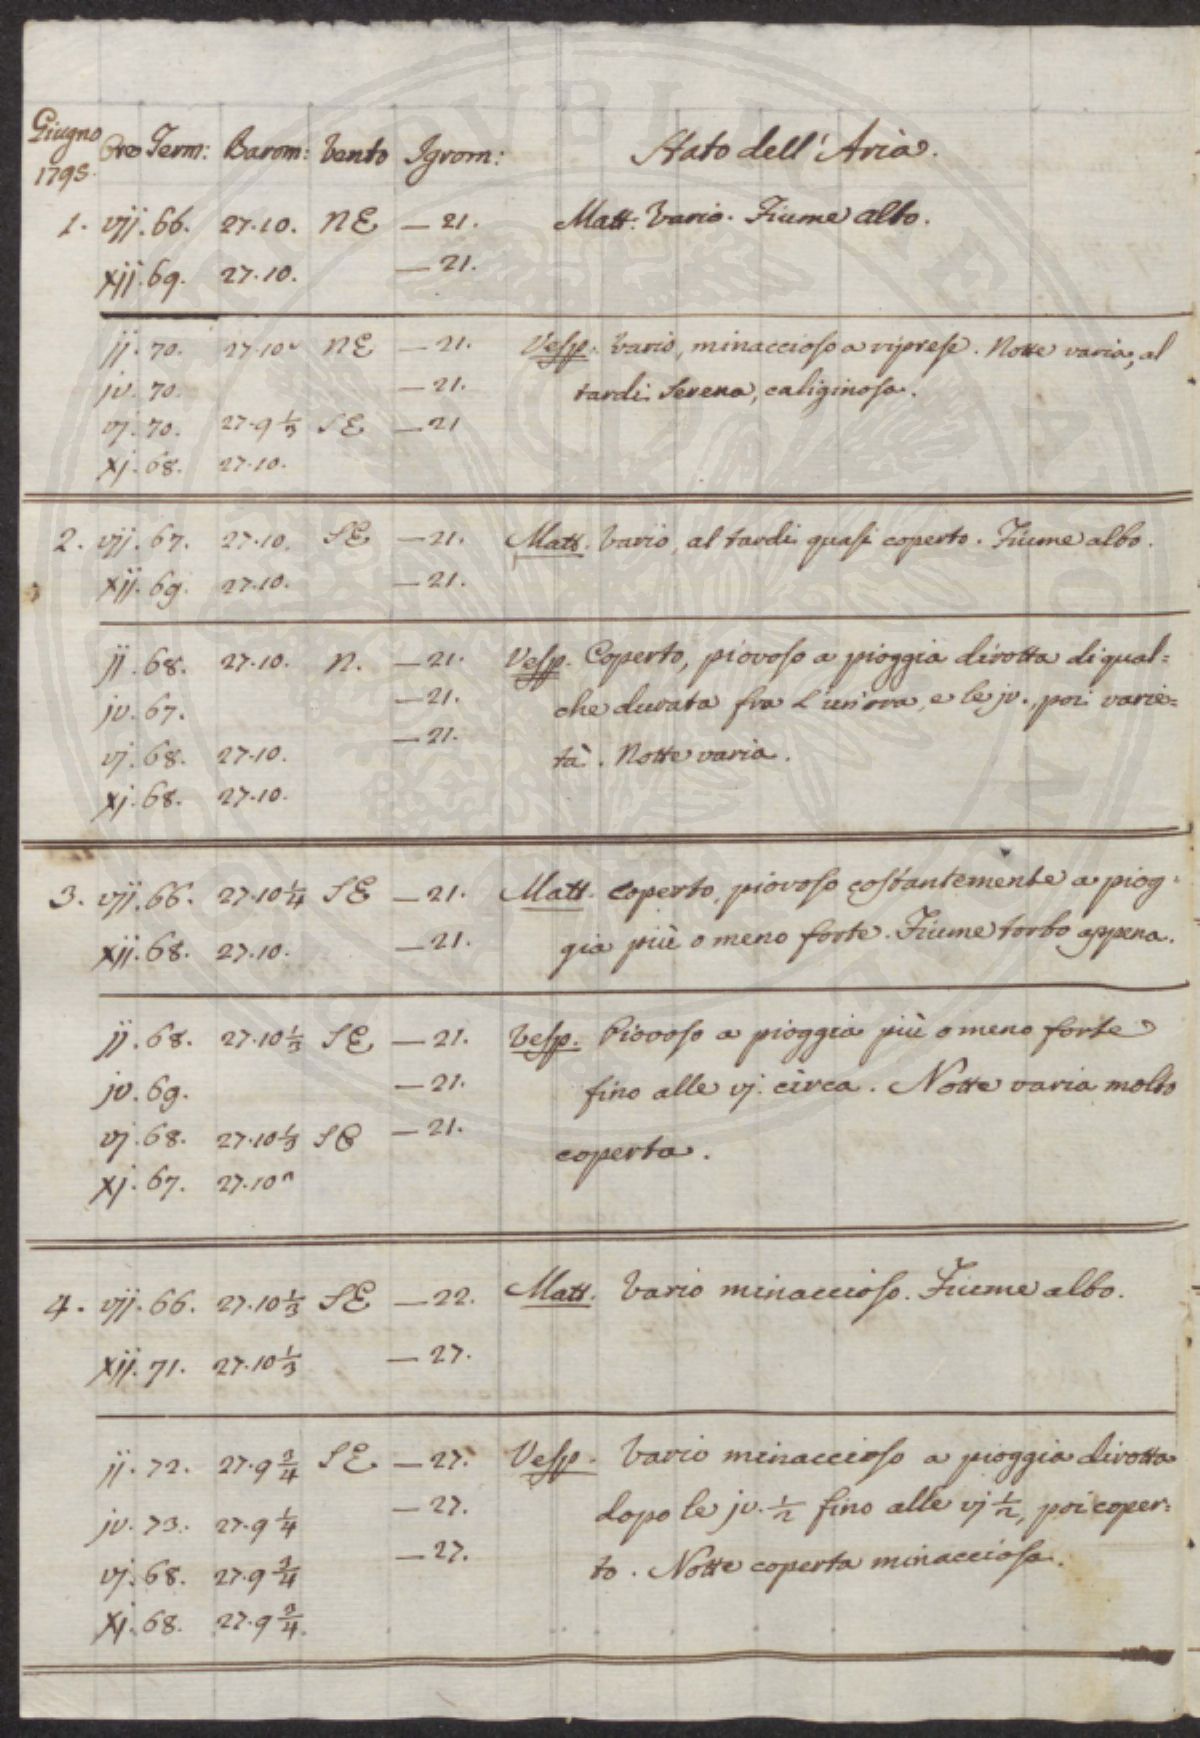 Giugno 1795. Ore Term: Barom: Vento Igrom: Stato dell'Aria.
1. vij. 66. 27.10. NE — 21. Matt: Vario. Fiume albo.
xij. 69. 27.10. — 21.
ij. 70. 27.10 NE — 21. Vesp. Vario, minaccioso a riprese. Notte varia, al
jv. 70. — 21. tardi Serena, caliginosa.
vj. 70. 27.9 1/3 SE — 21
xj. 68. 27.10.
2. vij. 67. 27.10. SE — 21. Matt. Vario, al tardi quasi coperto. Fiume albo.
xij. 69. 27.10. — 21.
ij. 68. 27.10. N. — 21. Vesp. Coperto, piovoso a pioggia dirotta di qual=
jv. 67. — 21. che durata fra l'un'ora, e le jv., poi varie=
vj. 68. 27.10. — 21. tà. Notte varia.
xj. 68. 27.10.
3. vij. 66. 27.10 1/4 SE — 21. Matt. Coperto, piovoso costantemente a piog=
xij. 68. 27.10. — 21. gia più o meno forte. Fiume torbo appena.
ij. 68. 27.10 1/3 SE — 21. Vesp. Piovoso a pioggia più o meno forte
jv. 69. — 21. fino alle vj. circa. Notte varia molto
vj. 68. 27.10 1/3 SE — 21. coperta.
xj. 67. 27.10
4. vij. 66. 27.10 1/3 SE — 22. Matt. Vario minaccioso. Fiume albo.
xij. 71. 27.10 1/3 — 27.
ij. 72. 27.9 3/4 SE — 27. Vesp. Vario minaccioso a pioggia dirotta
jv. 73. 27.9 1/4 — 27. dopo le jv. 1/2 fino alle vj 1/2, poi coper=
vj. 68. 27.9 3/4 — 27. to. Notte coperta minacciosa.
xj. 68. 27.9 3/4.